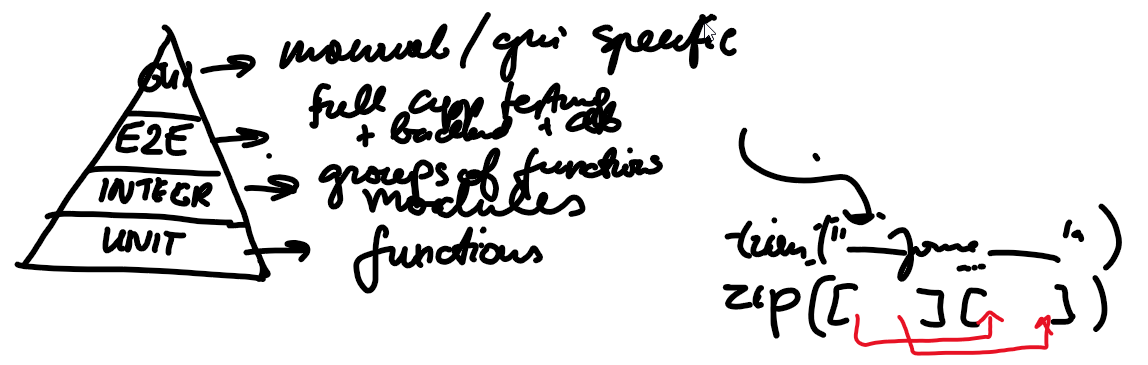 GUI
manual / gui specific
full app testing
+ backend + db
E2E
groups of functions
modules
INTEGR
UNIT
functions
trim("__ __")
zip([ ] [ ])